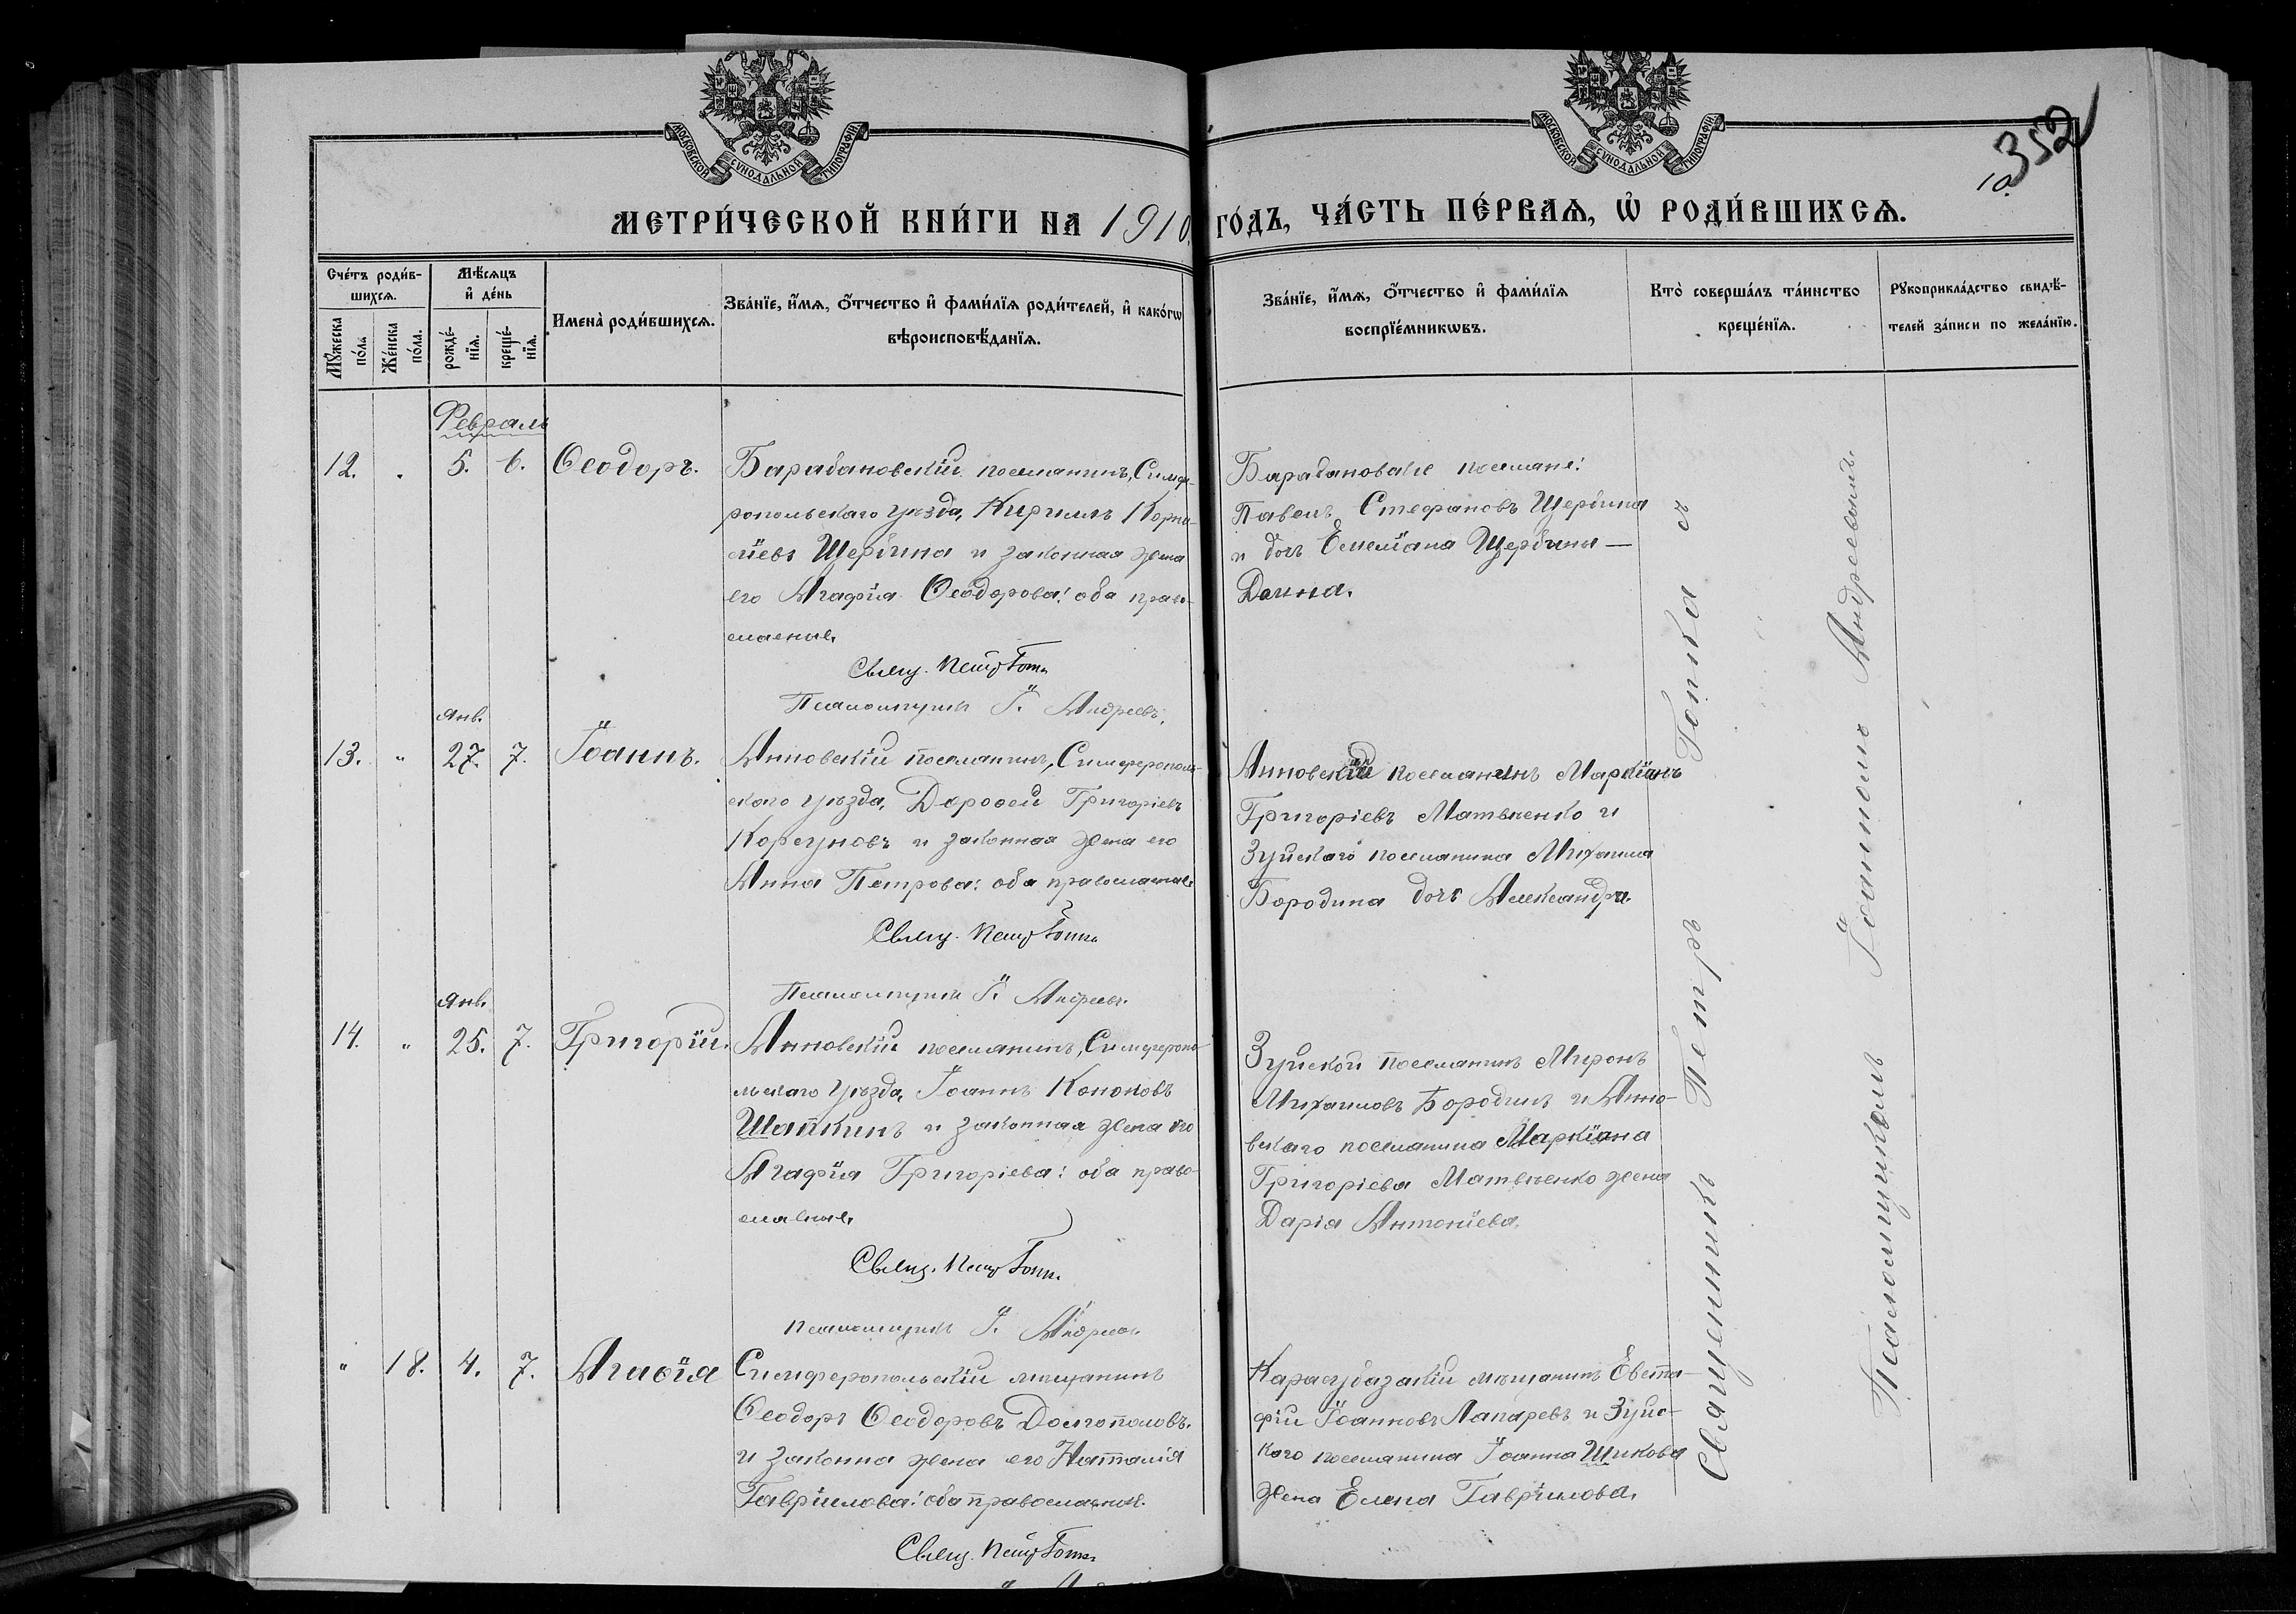 МОСКОВСКОЙ СУНОДАЛЬНОЙ ТИПОГРАФІИ
МОСКОВСКОЙ СУНОДАЛЬНОЙ ТИПОГРАФІИ
352
10.
МЕТРИ́ЧЕСКОЙ КНИ́ГИ НА 1910 ГО́ДЪ, ЧА́СТЬ ПЕ́РВАѦ, Ѡ҆ РОДИ́ВШИХСѦ.
Сче́тъ роди́в-
шихсѧ.
Мꙋ́жеска по́ла
Же́нска по́ла.
Мѣ́сѧцъ
и҆ де́нь
рожде́-
нїѧ.
креще́-
нїѧ.
Имена̀ роди́вшихсѧ.
Зва́нїе, и҆́мѧ, ѻ҆́тчество и҆ фами́лїѧ роди́телей, и҆ како́гѡ
вѣроисповѣ́данїѧ.
Зва́нїе, и҆́мѧ, ѻ҆́тчество и҆ фами́лїѧ
воспрїе́мникѡвъ.
Кто̀ соверша́лъ та́инство
креще́нїѧ.
Рꙋкоприкла́дство свидѣ́-
телей за́писи по жела́нїю.
Февраль
12. 5. 6. Ѳеодоръ.
Барабановскій поселянинъ, Симфе-
ропольскаго уѣзда, Кириллъ Корни-
ліевъ Щербина и законная жена
его Агафія Ѳеодорова: оба право-
славные.
Свящ. Петръ Гопка
Псаломщикъ І. Андреевъ.
Барабановскіе поселяне:
Павелъ Стефановъ Щербина
и дочь Емеліана Щербины —
Домна.
Янв.
13. " 27. 7. Іоаннъ.
Анновскій поселянинъ, Симферополь-
скаго уѣзда, Дороѳей Григоріевъ
Корсуновъ и законная жена его
Анна Петрова: оба православные
Свящ. Петръ Гопка
Псаломщикъ І. Андреевъ.
Анновскій поселянинъ Маркіанъ
Григоріевъ Матвѣенко и
Зуйскаго поселянина Михаила
Бородина дочь Александра.
Янв.
14. " 25. 7. Григорій.
Анновскій поселянинъ, Симферопо-
льскаго уѣзда, Іоаннъ Кононовъ
Шапкинъ и законная жена его
Агафія Григоріева: оба право-
славные.
Свящ. Петръ Гопка
Псаломщикъ І. Андреевъ.
Зуйской поселянинъ Миронъ
Михаиловъ Бородинъ и Анно-
вскаго поселянина Маркіана
Григоріева Матвѣенко жена
Дарія Антоніева.
" 18. 4. 7. Агаѳія
Симферопольскій мѣщанинъ
Ѳеодоръ Ѳеодоровъ Долгополовъ.
и законна жена его Наталія
Гавріилова: оба православные.
Свящ. Петръ Гопка
Карасубазскій мѣщанинъ Евста-
фій Іоанновъ Лапаревъ и Зуйс-
кого поселянина Іоанна Шикова
жена Елена Гавріилова.
Священникъ Петръ Гопка съ
Псаломщикомъ Іоанномъ Андреевымъ.